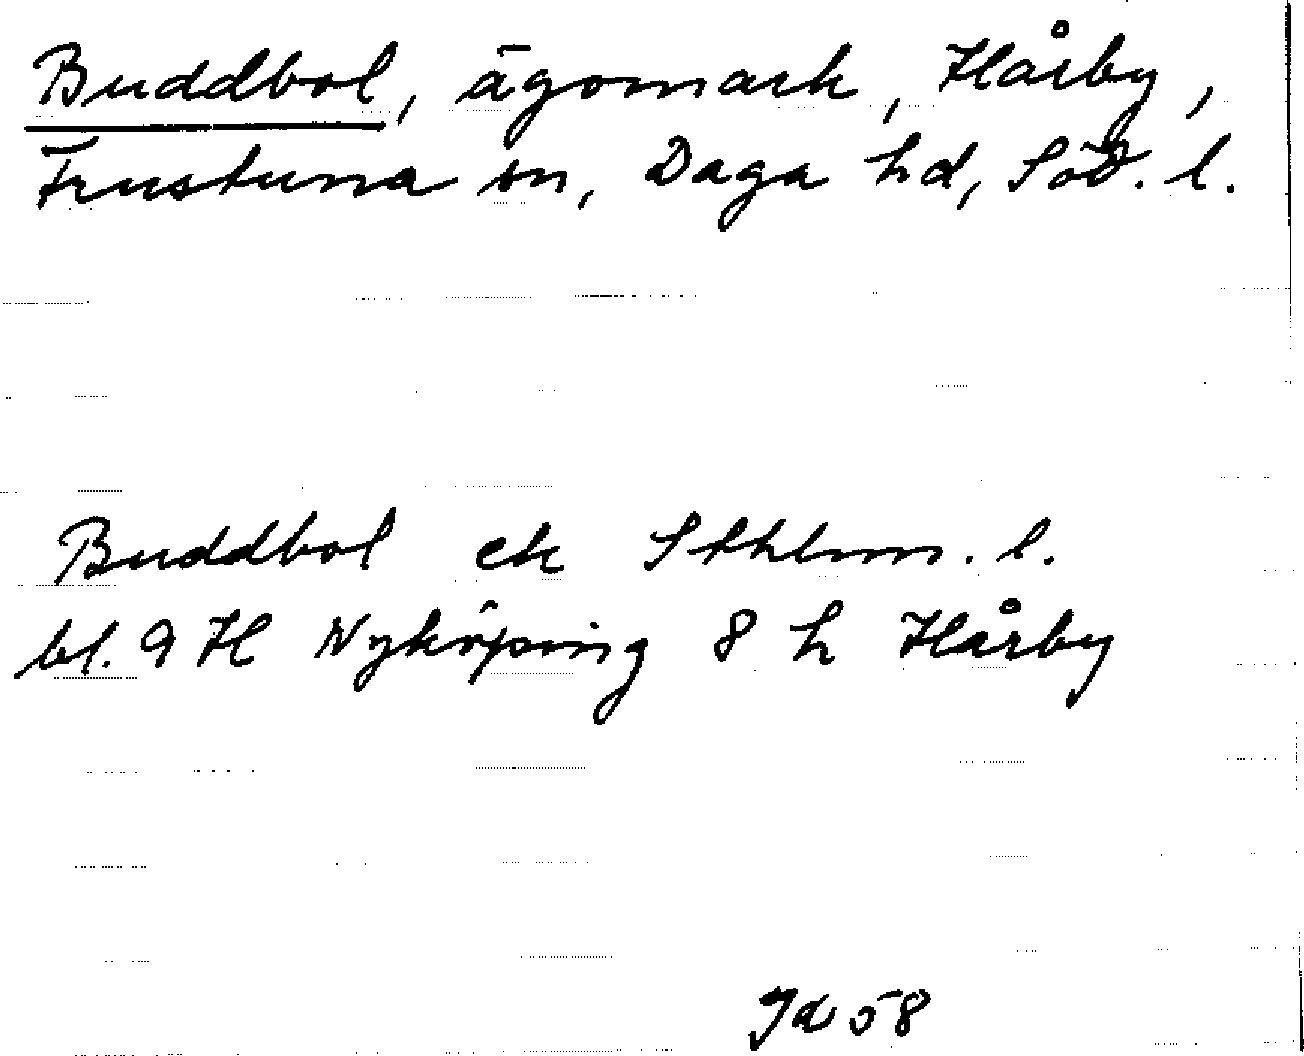 Buddbol, ägomark, Hårby,
Frustuna sn, Daga hd, Söd. l.
Buddbol ek Sthlms. l.
bl. 9 H Nyköping 8 h Hårby
Id 58